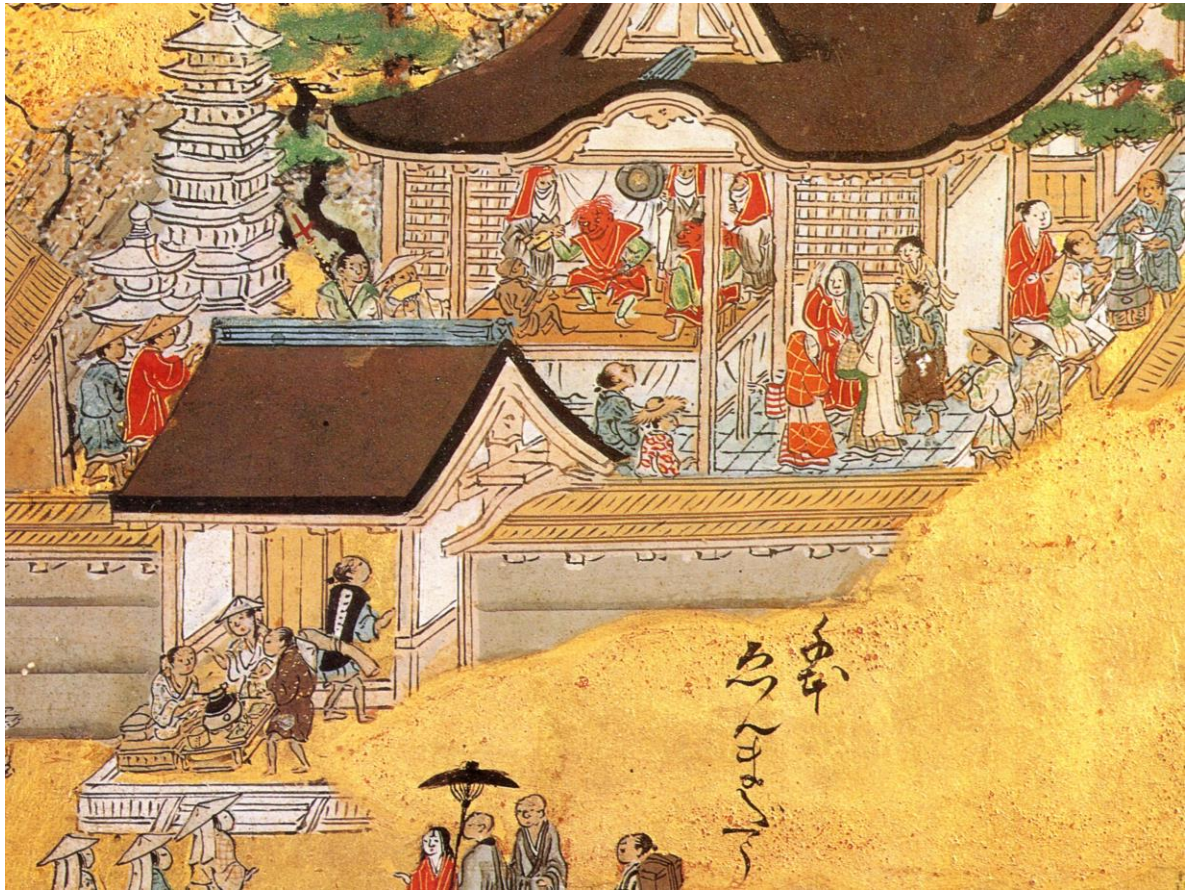 千本
ゑんまだう